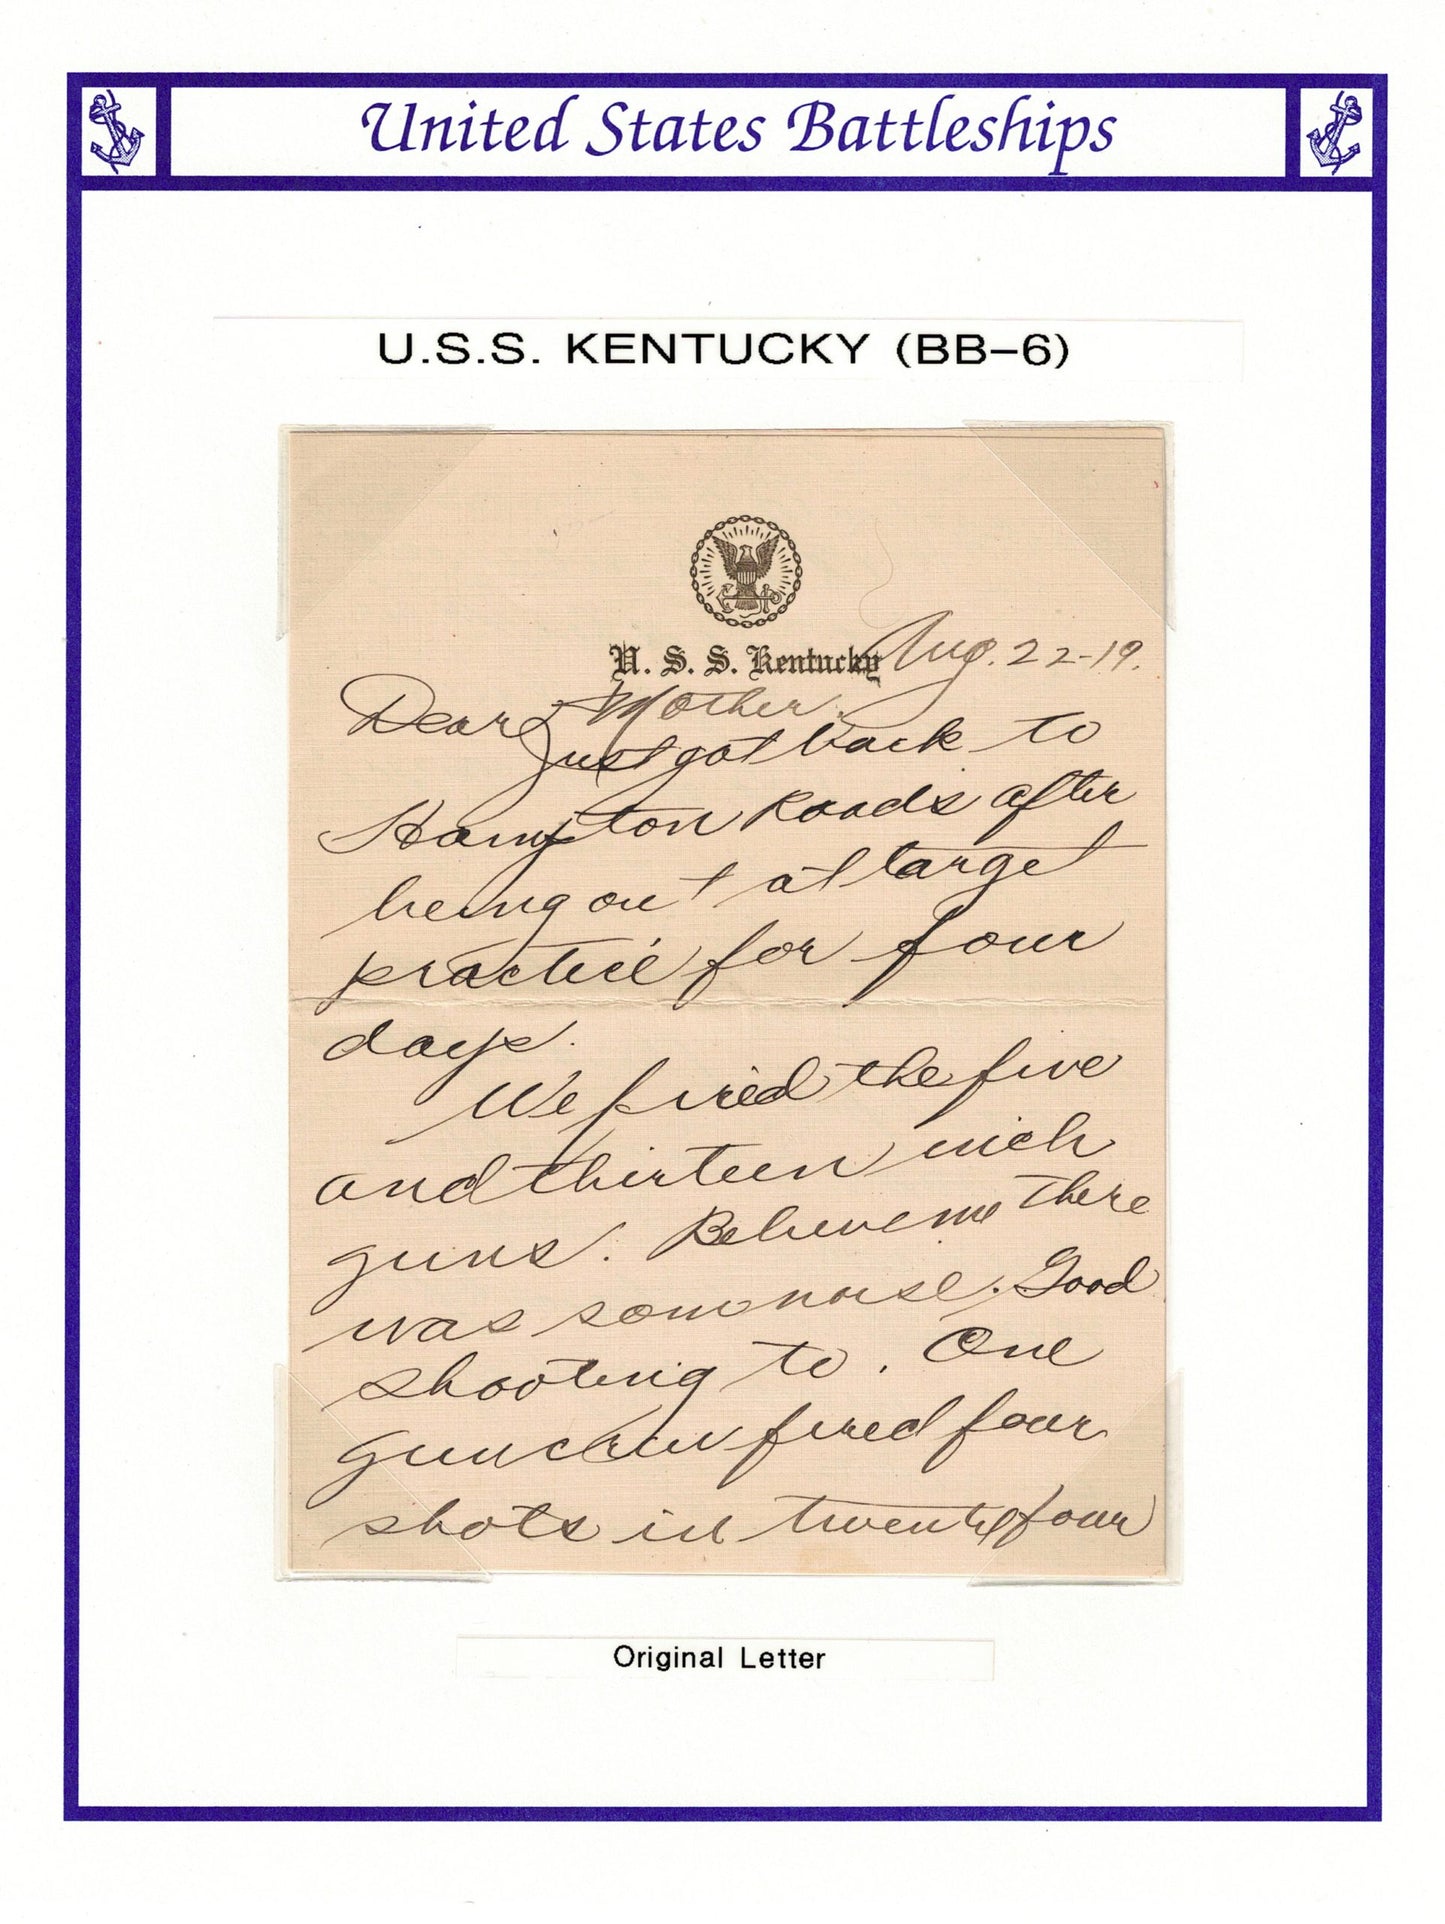 United States Battleships
U.S.S. KENTUCKY (BB-6)
U. S. S. Kentucky Aug. 22-19.
Dear Mother.
Just got back to
Hampton Roads after
being out at target
practice for four
days.
We fired the five
and thirteen inch
guns. Believe me there
was som noise. Good
shooting to. One
gun crew fired four
shots in twenty four
Original Letter